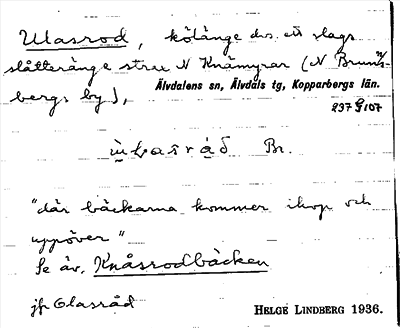 Ulasrod, kölänge dvs. ett slags
slåtteränge strax N Knämyrar (N Brunns-
bergs by),
Älvdalens sn, Älvdals tg, Kopparbergs län.
237 G 107
Br.
"där bäckarna kommer ihop och
uppöver"
Se äv. Knåsrodbäcken
jfr Olasråd
HELGE LINDBERG 1936.